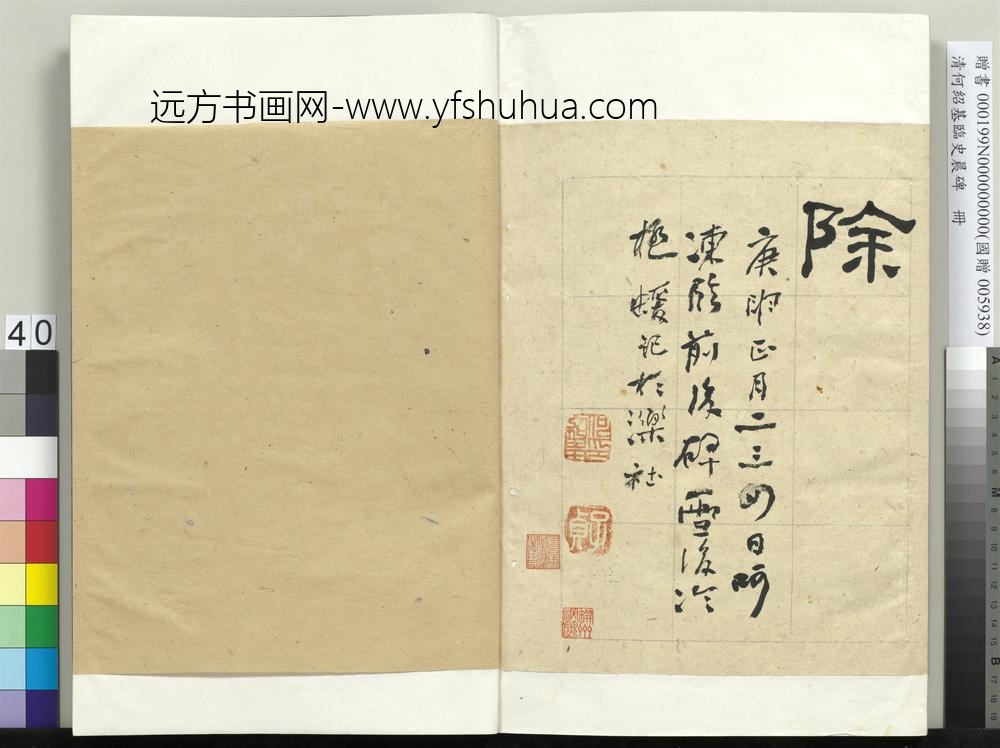 远方书画网-www.yfshuhua.com
除
庚申正月二三四日呵
凍臨前後碑雪後冷
極蝯記於濼社
贈書 000199N000000000(國贈 005938)
清何紹基臨史晨碑 冊
40
A 1 2 3 4 5 6 M 8 9 10 11 12 13 14 15 B 17 18 19